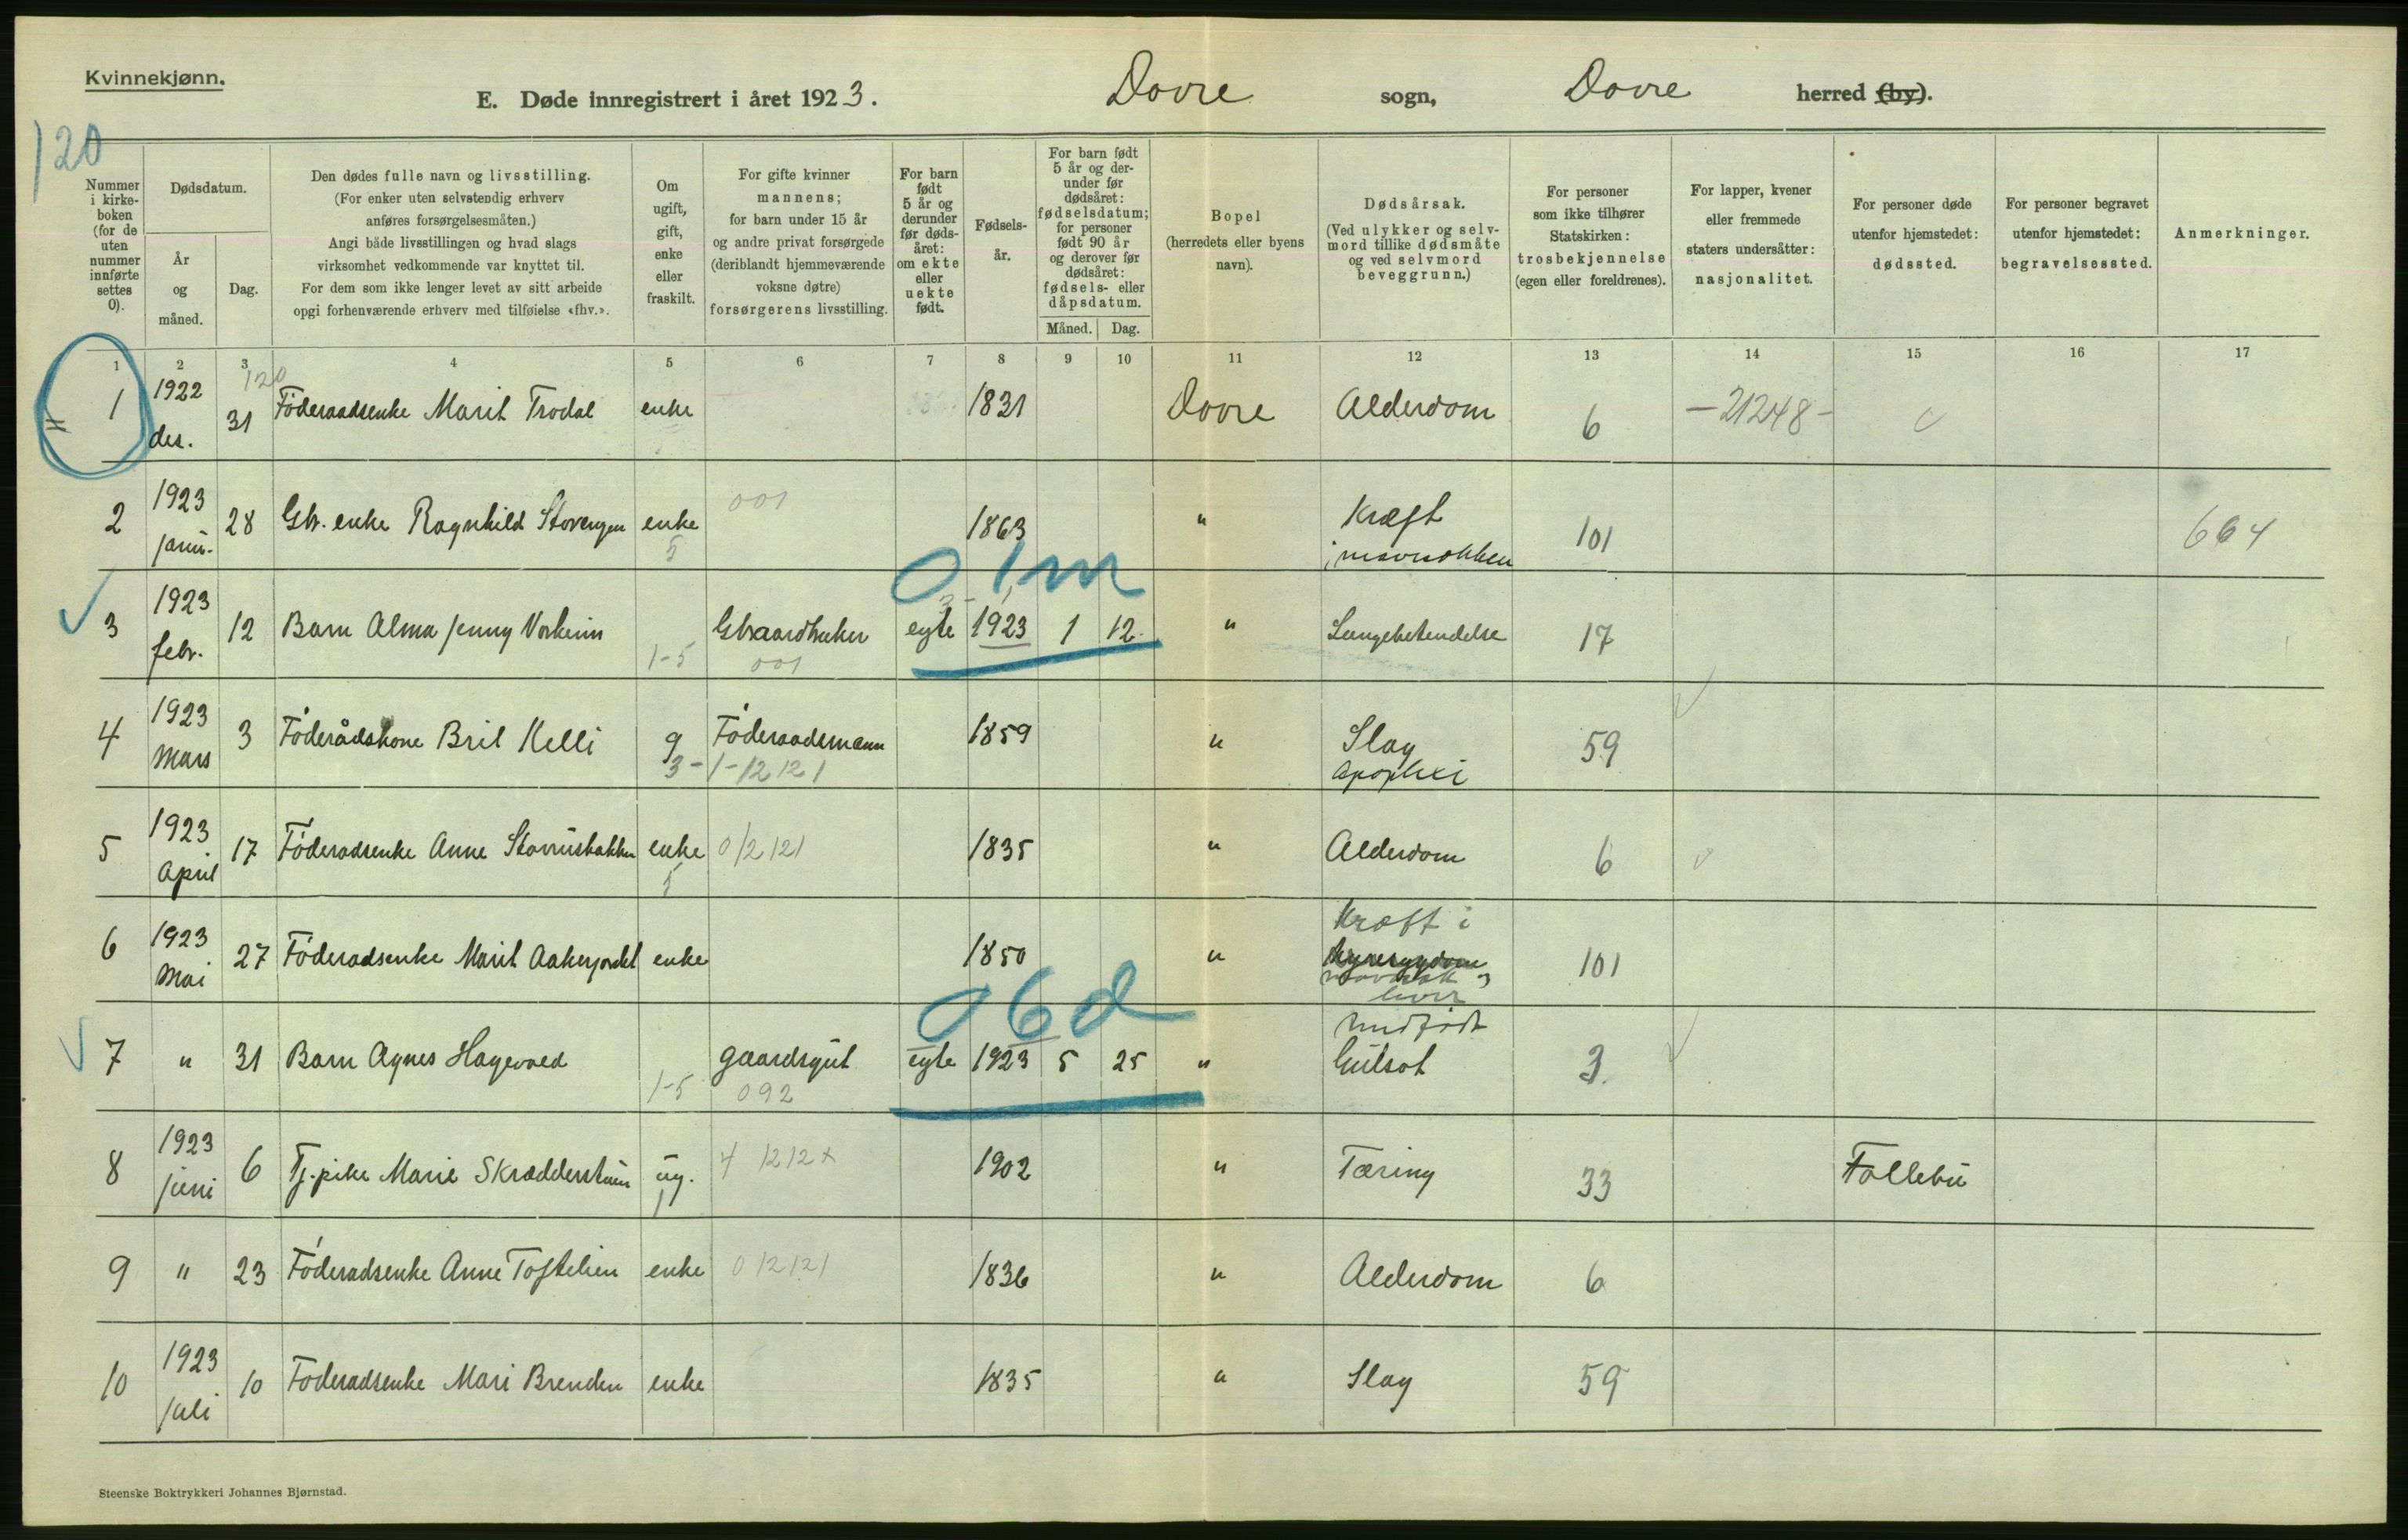 Kvinnekjønn.
E. Døde innregistrert i året 1923. Dovre sogn, Dovre herred (by).
120
Nummer i kirkeboken (for de uten nummer innførte settes 0).
Dødsdatum.
År og måned.
Dag.
Den dødes fulle navn og livsstilling.
(For enker uten selvstendig erhverv
anføres forsørgelsesmåten.)
Angi både livsstillingen og hvad slags
virksomhet vedkommende var knyttet til.
For dem som ikke lenger levet av sitt arbeide
opgi forhenværende erhverv med tilføielse «fhv.».
Om ugift, gift, enke eller fraskilt.
For gifte kvinner
mannens;
for barn under 15 år
og andre privat forsørgede
(deriblandt hjemmeværende
voksne døtre)
forsørgerens livsstilling.
For barn født 5 år og derunder før dødsåret: om ekte eller uekte født.
Fødselsår.
For barn født 5 år og derunder før dødsåret: fødselsdatum; for personer født 90 år og derover før dødsåret: fødsels- eller dåpsdatum.
Måned. Dag.
Bopel
(herredets eller byens
navn).
Dødsårsak.
(Ved ulykker og selvmord tillike dødsmåte og ved selvmord beveggrunn.)
For personer
som ikke tilhører
Statskirken:
trosbekjennelse
(egen eller foreldrenes).
For lapper, kvener
eller fremmede
staters undersåtter:
nasjonalitet.
For personer døde
utenfor hjemstedet:
dødssted.
For personer begravet
utenfor hjemstedet:
begravelsessted.
Anmerkninger.
1 2 3 4 5 6 7 8 9 10 11 12 13 14 15 16 17
120
1 1922 des. 31 Föderaadsenke Marit Trodal enke 1831 Dovre Alderdom 6 -21248-
2 1923 janu. 28 Gbr. enke Ragnhild Stovengen enke 5 001 1863 " Kræft i mavesækken 101 664
0 1 m
3 1923 febr. 12 Barn Alma Jenny Vorkinn 1-5 Gbraardbruker 001 egte 1923 1 12. " Lungebetendelse 17
4 1923 Mars 3 Föderådskone Brit Kelli g 3 Föderaadsmann -1-12121 1859 " Slag apoplexi 59
5 1923 April 17 Föderadsenke Anne enke 5 012121 1835 " Alderdom 6
6 1923 Mai 27 Föderadsenke Marit Aakerjordet enke 1850 " Kræft i mavesæk og lever 101
0 6 d
7 " 31 Barn Agnes Hagevold 1-5 gaardsgut 092 egte 1923 5 25 " medfödt Gulsot 3.
8 1923 juni 6 Tj. pike Marie Skrædderstuen ug. 4 1212x 1902 " Tæring 33 Follebu
9 " 23 Föderadsenke Anne Toftelien enke 012121 1836 " Alderdom 6
10 1923 juli 10 Föderadsenke Mari Brenden enke 1835 " Slag 59
Steenske Boktrykkeri Johannes Bjørnstad.